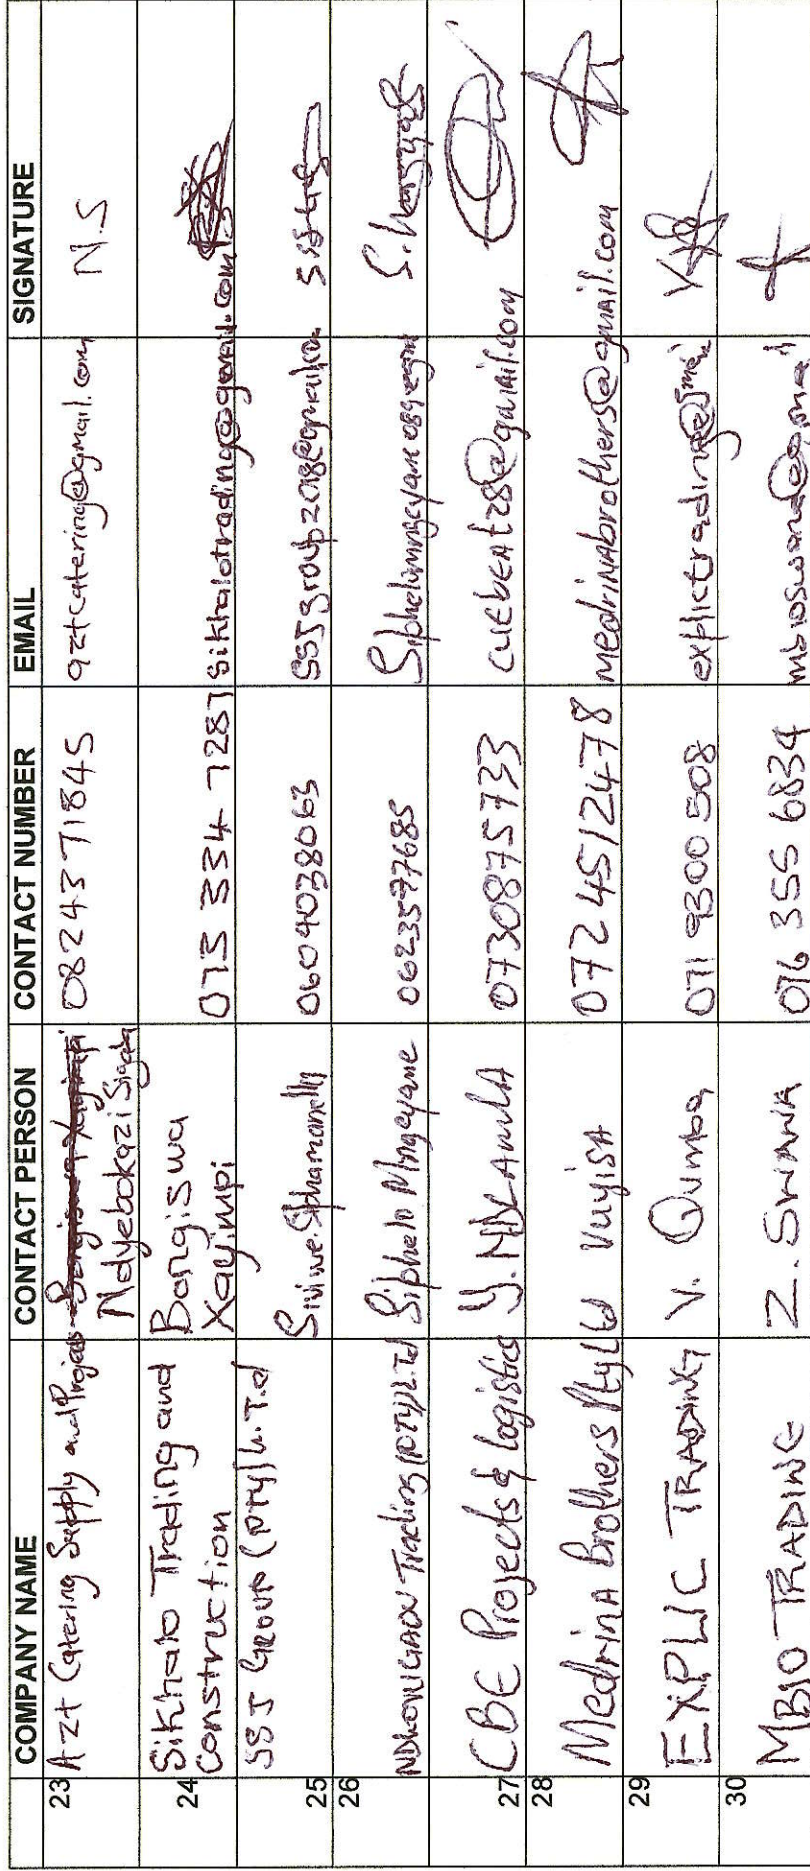 COMPANY NAME CONTACT PERSON CONTACT NUMBER EMAIL SIGNATURE
23 Azt Catering Supply and Projects Ndyebokazi 0824371845 aztcatering@gmail.com N.S
24 Sikhalo Trading and Construction Bongiswa Xayimpi 073 334 7287 sikhalotrading@gmail.com
25 SSJ Group (pty) L.T.d Siviwe 0604038063 SSJgroup2018@gmail.com
26 Trading (PTY) L.Td Siphelo Mngcyane 0623577685
27 CBE Projects & logistics Y. 0730875733 cuebeatz8@gmail.com
28 Medrina Brothers Pty Ltd Vuyisa 0724512478 medrinabrothers@gmail.com
29 EXPLIC TRADING V. Qumba 071 9300 508
30 MBIO TRADING Z. SWANA 076 355 6834